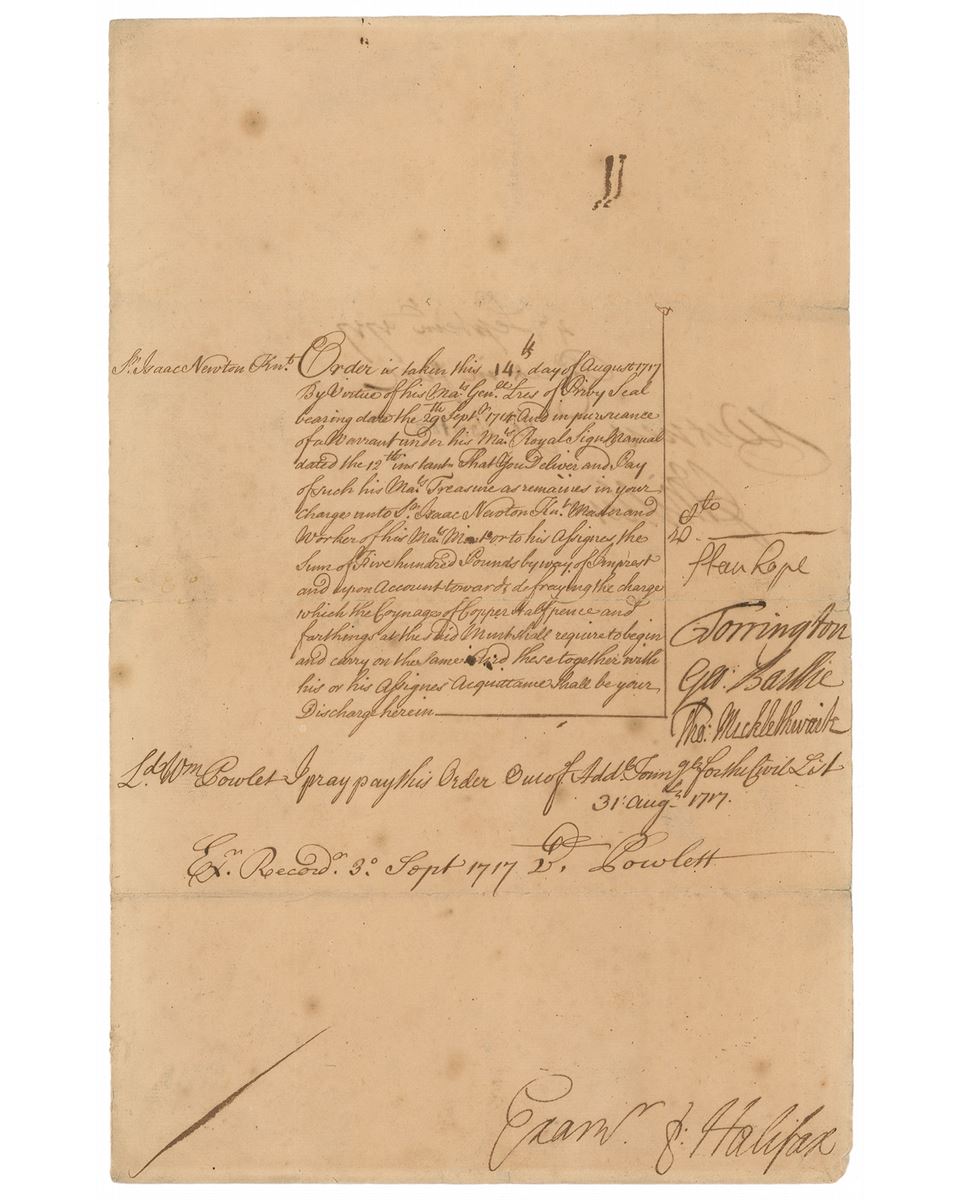 Sr. Isaac Newton Knt. Order is taken this 14th day of August 1717
By Virtue of his Mats. Genll. Lres of Privy Seal
bearing date the 29th Septr. 1714 And in pursuance
of a Warrant under his Mats. Royal Sign Manual
dated the 12th instant That You Deliver and Pay
of such his Mats. Treasure as remaines in your
Charge unto Sr. Isaac Newton Knt. Master and
Worker of his Mats. Mint or to his Assignes the
Sum of Five hundred Pounds by way of Imprest
and upon Account towards defraying the charge
which the Coynage of Copper Half pence and
farthings at the said Mint shall require to begin
and carry on the same And these together with
his or his Assignes Acquittance Shall be your
Discharge herein
Stanhope
Torrington
Geo: Baillie
Tho: Micklethwaite
Ld. Wm Powlet I pray pay this Order Out of Addll for the Civil List
31: Augt. 1717.
Exr. Recordr. 3o. Sept 1717 Powlett
Examr. p: Halifax